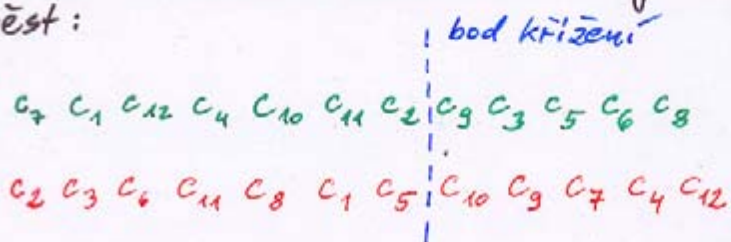 ěst:
bod křížení
c₇ c₁ c₁₂ c₄ c₁₀ c₁₁ c₂ c₉ c₃ c₅ c₆ c₈
c₂ c₃ c₆ c₁₁ c₈ c₁ c₅ c₁₀ c₉ c₇ c₄ c₁₂